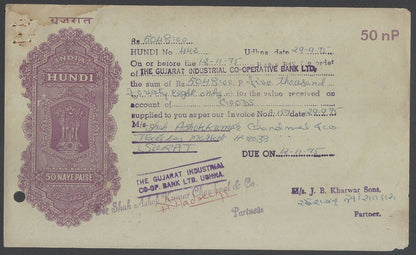 गुजरात
INDIA
HUNDI
50 NAYE PAISE
50 nP
Rs. 5048=00
HUNDI No 442 Udhna date 29-9-95
On or before the 12-11-95
THE GUJARAT INDUSTRIAL CO-OPERATIVE BANK LTD.,
the sum of Rs 5048=00 P Five thousand
fourty eight only for the value received on
account of GOODS
supplied to you as per our Invoice No. date 29.9.95
M/s Shah Ashokkumar Chandmal & Co
Textiles Market
SURAT
DUE ON 12-11-95
THE GUJARAT INDUSTRIAL
CO-OP. BANK LTD. UDHNA.
For Shah Ashok Kumar & Co.
Partners
M/s. J. B. Kharwar Sons,
Partner.